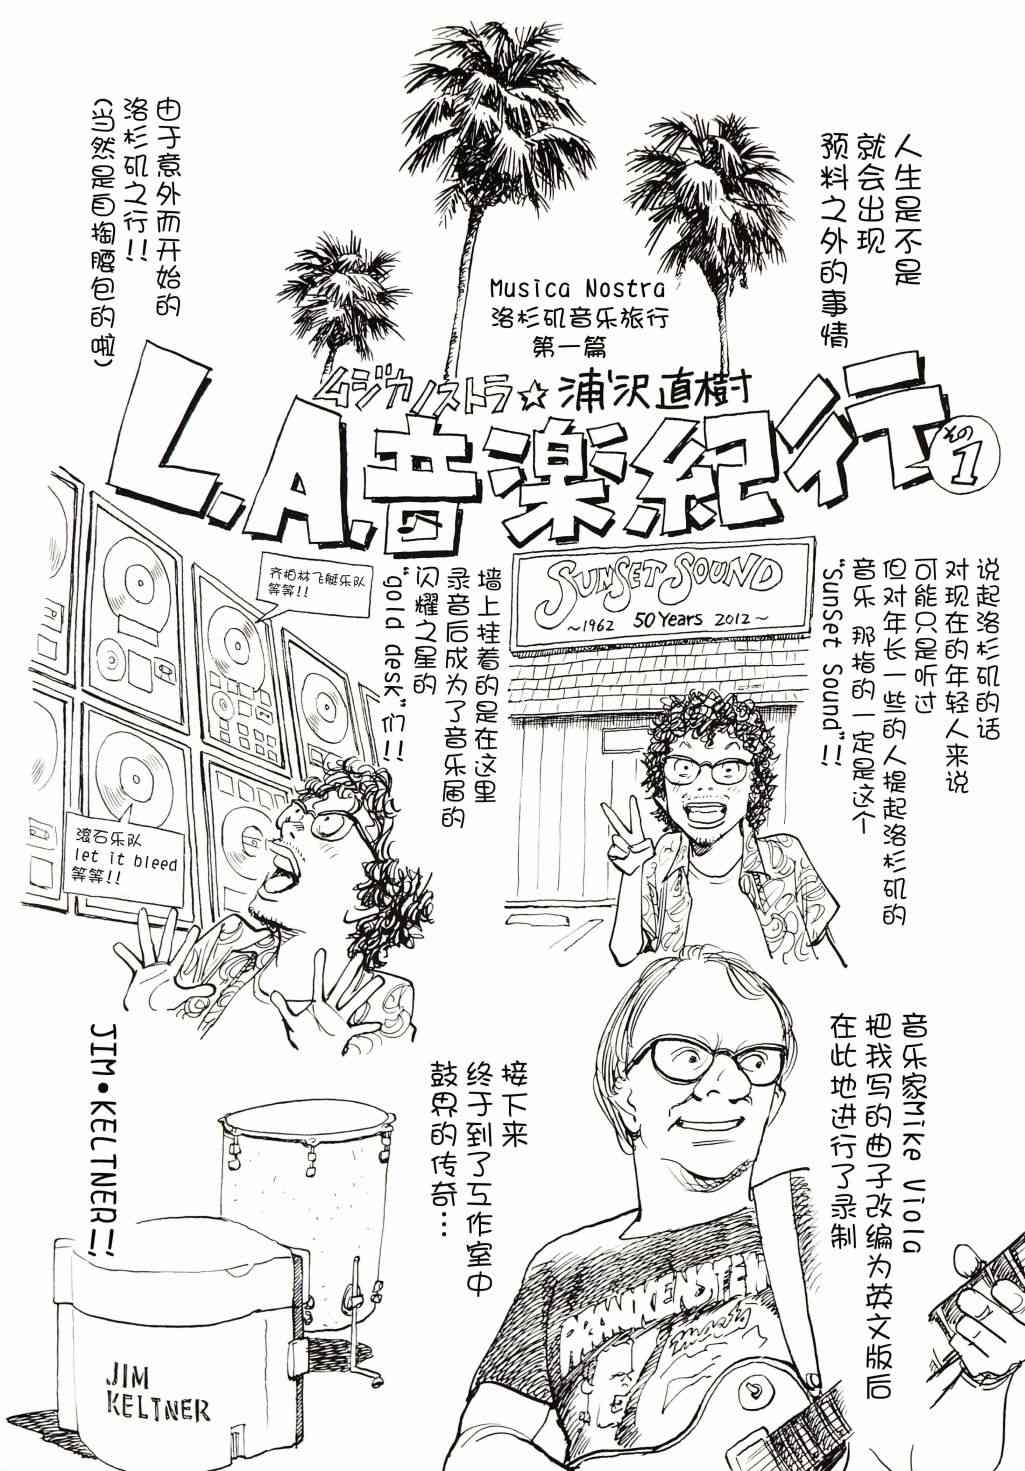 人生是不是
就会出现
预料之外的事情
由于意外而开始的
洛杉矶之行!!
(当然是自掏腰包的啦)
Musica Nostra
洛杉矶音乐旅行
第一篇
ムジカノストラ☆浦沢直樹
L.A.音楽紀行
その
1
说起洛杉矶的话
对现在的年轻人来说
可能只是听过
但对年长一些的人提起洛杉矶的
音乐 那指的一定是这个
"SunSet Sound"!!
SUNSET SOUND
~1962 50 Years 2012~
墙上挂着的是在这里
录音后成为了音乐届的
闪耀之星的
"gold desk"们!!
齐柏林飞艇乐队
等等!!
滚石乐队
let it bleed
等等!!
音乐家Mike Viola
把我写的曲子改编为英文版后
在此地进行了录制
FRANKENSTEIN
接下来
终于到了工作室中
鼓界的传奇…
JIM•KELTNER!!
JIM
KELTNER